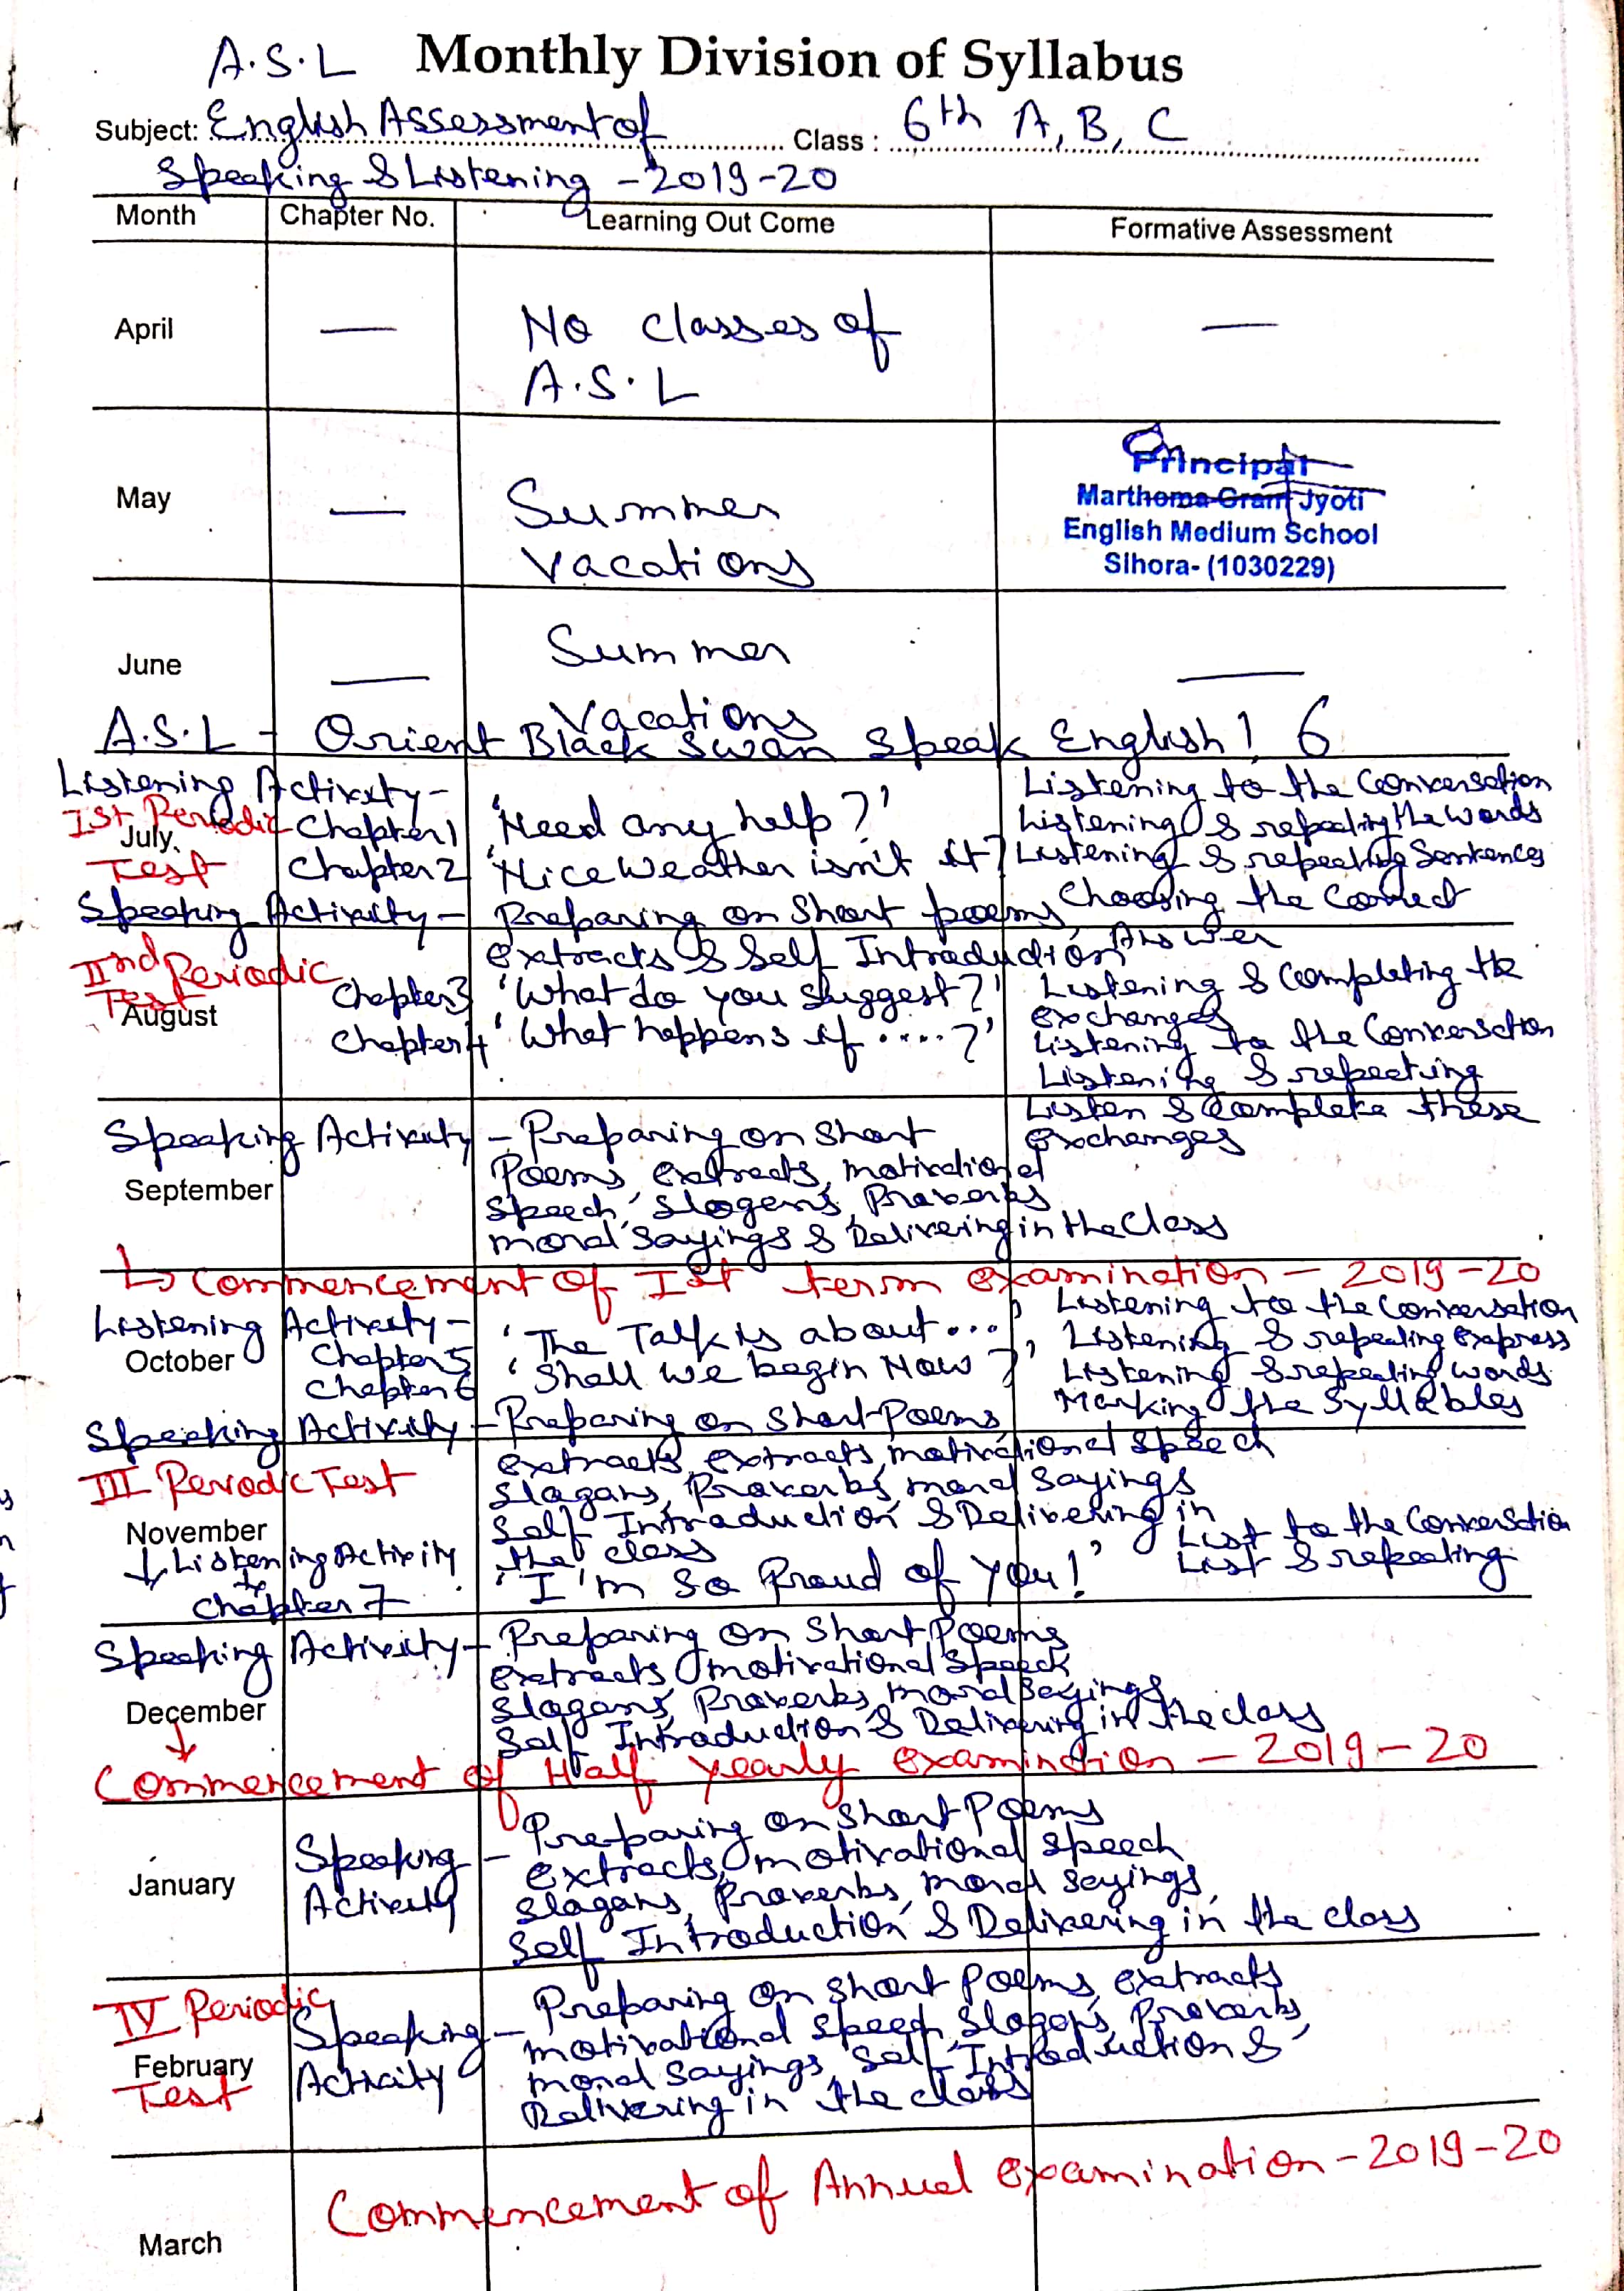 A.S.L Monthly Division of Syllabus
Subject: English Assessment of Class : 6th A, B, C
Speaking & Listening - 2019-20
Month Chapter No. Learning Out Come Formative Assessment
April — No classes of —
A.S.L
Principal
Marthoma Gram Jyoti
May — Summer English Medium School
Vacations Sihora- (1030229)
Summer
June — —
Vacations
A.S.L - Orient Black Swan Speak English! 6
Listening Activity- Listening to the Conversation
Ist Periodic Chapter 1 'Need any help?' Listening & repeating the words
July.
Test Chapter 2 'Nice Weather isn't it?' Listening & repeating Sentences
Speaking Activity - Preparing on Short poems, Choosing the Correct
extracts & Self Introduction Answer
IInd Periodic Chapter 3 'What do you suggest?' Listening & Completing the
Test exchanges
August Chapter 4 'What happens if ....?' Listening to the Conversation
Listening & repeating
Listen & Complete these
Speaking Activity - Preparing on Short exchanges
Poems, extracts, motivational
September Speech, Slogens, Proverbs
moral Sayings & Delivering in the Class
↳ Commencement of Ist term examination - 2019-20
Listening Activity- 'The Talk is about...', Listening to the Conversation
October Chapter 5 'Shall we begin Now?', Listening & repeating express
Chapter 6 Listening & repeating words
Marking the Syllables
Speaking Activity - Preparing on Short Poems,
extracts, extracts, motivational Speech
III Periodic Test Slogans, Proverbs, moral Sayings
November Self Introduction & Delivering in
the class List to the Conversation
↓ Listening Activity 'I'm So Proud of You!' List & repeating
Chapter 7
Speaking Activity - Preparing on Short Poems
extracts, motivational Speech
December Slogans, Proverbs, moral Sayings,
Self Introduction & Delivering in the class
Commencement of Half Yearly examination - 2019-20
Preparing on Short Poems
January Speaking - extracts, motivational Speech
Activity Slogans, Proverbs, moral Sayings,
Self Introduction & Delivering in the class
IV Periodic Preparing on Short Poems, extracts
Speaking - motivational Speech, Slogans, Proverbs,
February Activity moral Sayings, Self Introduction &
Test Delivering in the class
Commencement of Annual examination - 2019-20
March